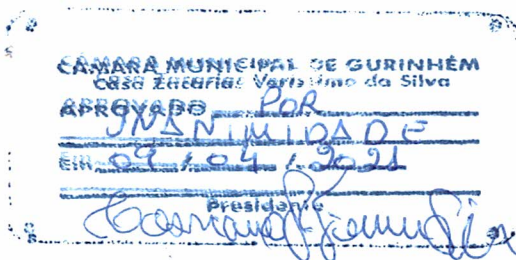 CÂMARA MUNICIPAL DE GURINHÉM
Casa Zacarias Veríssimo da Silva
APROVADO POR
UNANIMIDADE
Em 09 / 04 / 2021
Presidente